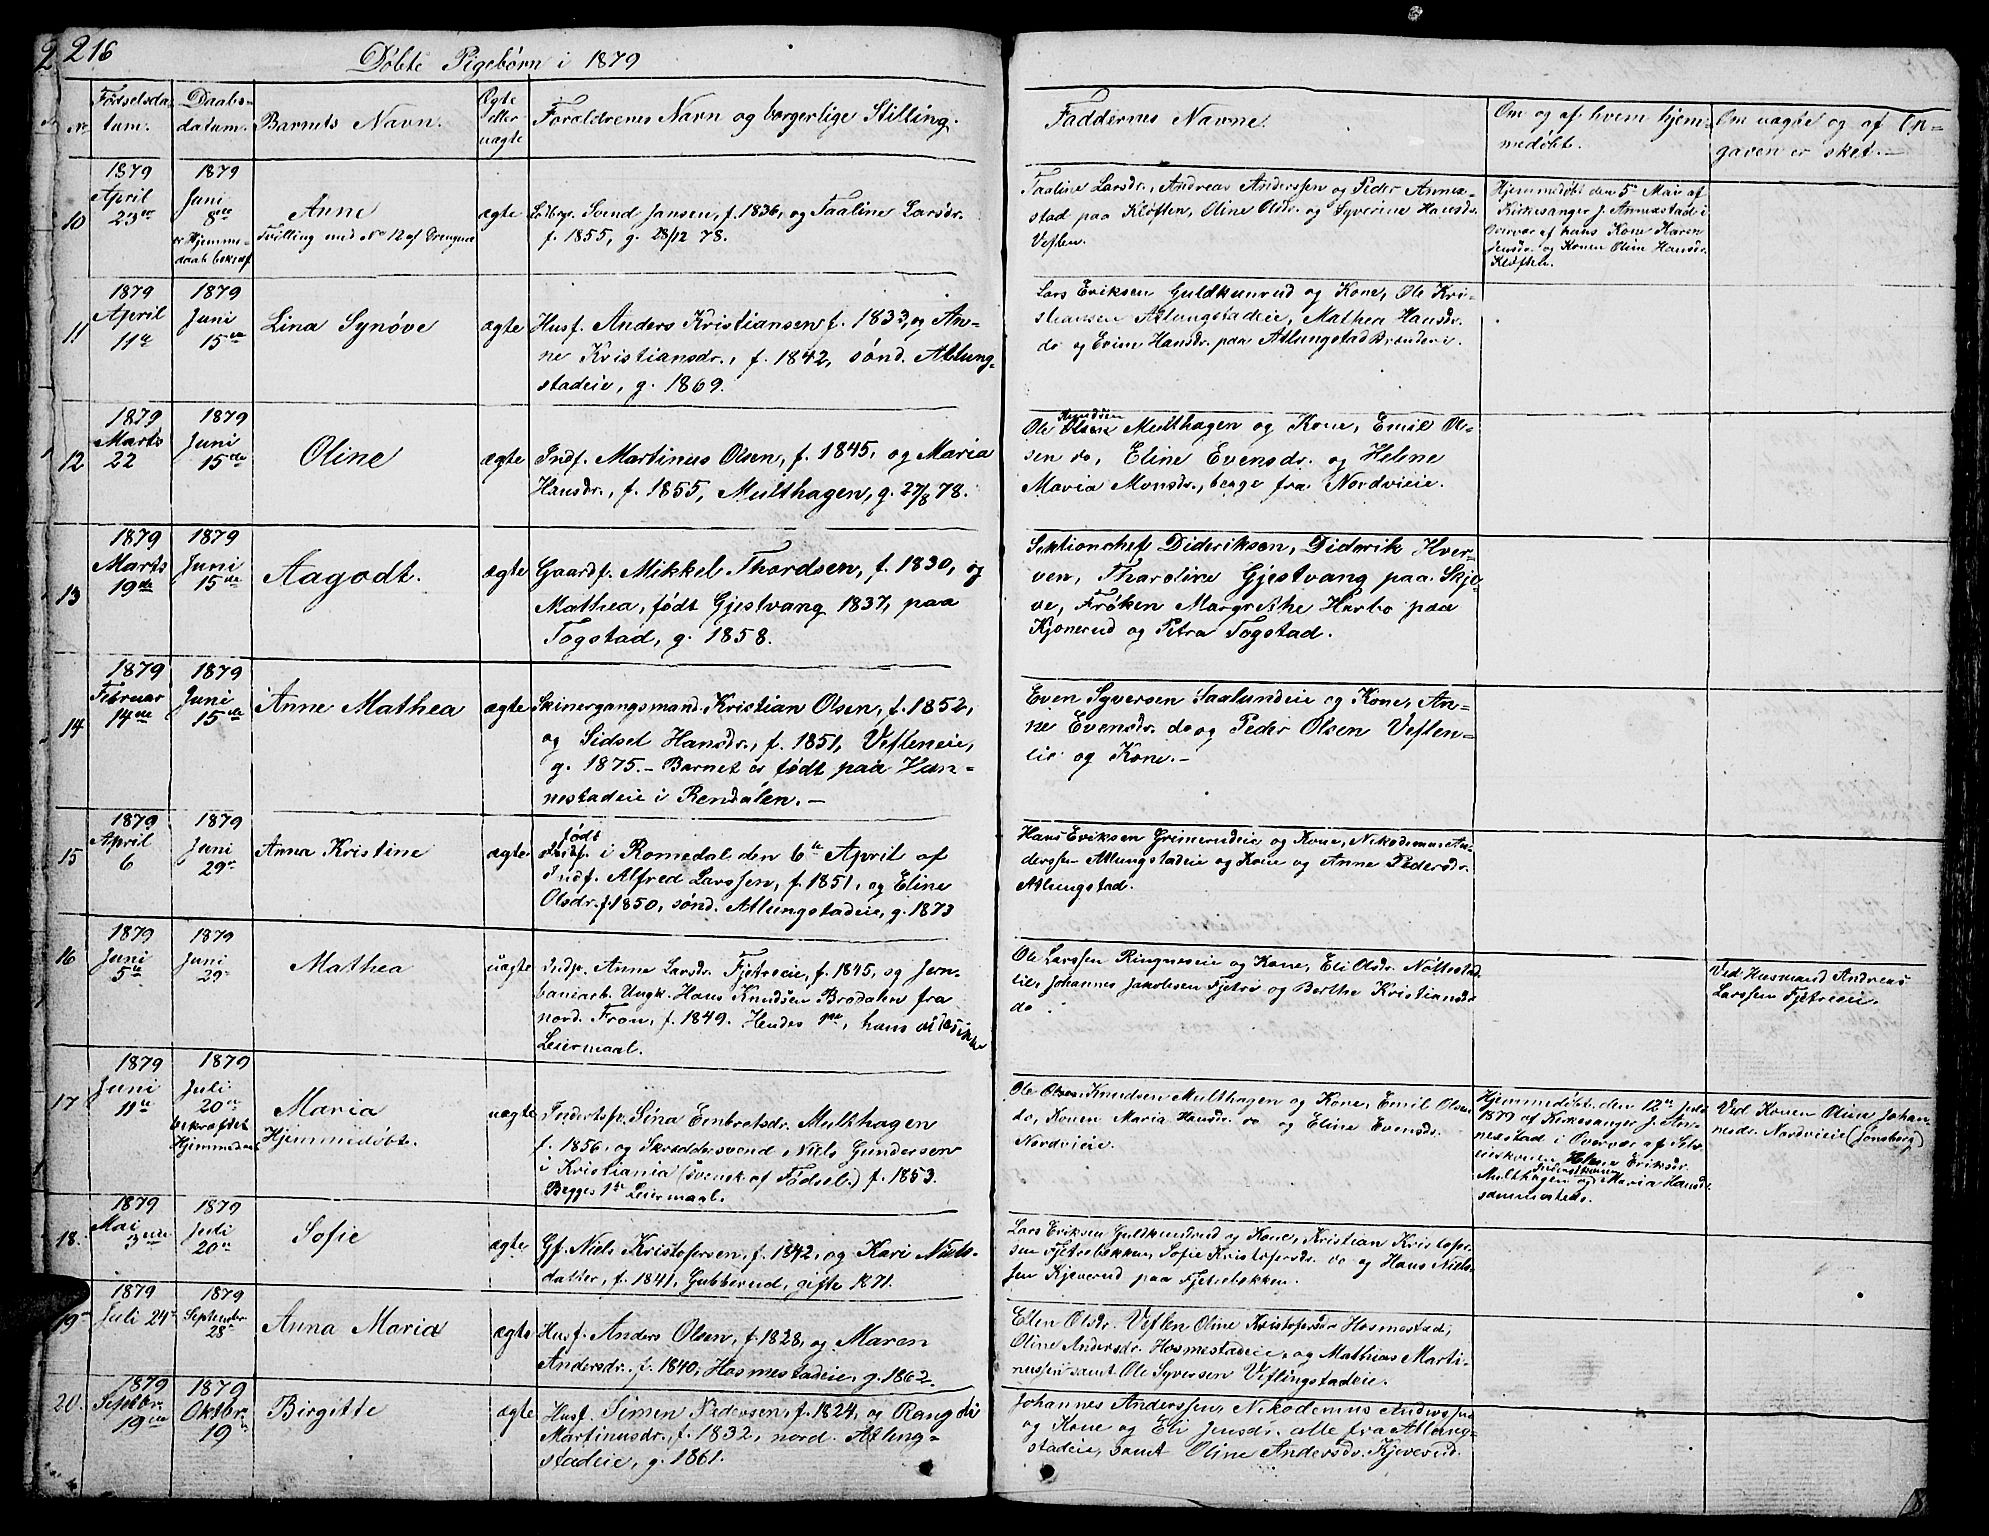 216
Døbte Pigebørn i 1879
Nr.
Fødselsda-
tum.
Daabs-
datum.
Barnets Navn.
Ægte
eller
uægte
Forældrenes Navn og borgerlige Stilling.
Faddernes Navne.
Om og af hvem hjem-
medøbt.
Om uægte og af
gaven er sket.
10
1879
April
23de
1879
Juni
8de
er Hjemme-
daab bekræf
Anne
Tvilling med No 12 af Drengene
ægte
Svend Jansen, f. 1836, og Taaline Larsdr.
f. 1855, g. 28/12 78.
Taaline Larsdr., Andreas Anderssen og Peder Annex-
stad paa Kløften, Oline Olsdr. og Syverine Hansdr.
Veflen.
Hjemmedøbt den 5te Mai af
Kirkesanger J. Annexstad i
Overvær af hans Kone Karen
Jensdr. og Konen Oline Hansdr.
Kløften.
11
1879
April
11te
1879
Juni
15de
Lina Synøve
ægte
Husf. Anders Kristiansen f. 1833, og An-
ne Kristiansdr., f. 1842, sønd. Atlung-
stadeie, g. 1869.
Lars Eriksen Guldkunrud og Kone, Ole Kri-
stiansen Atlungstadeie, Mathea Hansdr.
do og Evine Hansdr. paa Atlungstad Brænderi.
12
1879
Marts
22
1879
Juni
15de
Oline
ægte
Indf. Martinus Olsen, f. 1845, og Maria
Hansdr., f. 1855, Multhagen, g. 27/8 78.
Knudsen
Ole Olsen Multhagen og Kone, Emil Ol-
sen do, Eline Evensdr. og Helene
Maria Monsdr., begge fra Nordvieie.
13
1879
Marts
19de
1879
Juni
15de
Aagodt.
ægte
Gaardf. Mikkel Thordsen, f. 1830, og
Mathea, født Gjestvang 1837, paa
Togstad, g. 1858.
Sektionchef Dideriksen, Diderik Hver-
ven, Tharoline Gjestvang paa Skjo-
ve, Frøken Margrethe Harbo paa
Kjonerud og Petra Togstad.
14
1879
Februar
14de
1879
Juni
15de
Anne Mathea
ægte
Skinergangsmand Kristian Olsen, f. 1852,
og Sidsel Hansdr., f. 1851, Vefleneie,
g. 1875. – Barnet er født paa Han-
nestadeie i Rendalen. –
Even Syversen Saalundeie og Kone, An-
ne Evensdr. do og Peder Olsen Veflen-
eie og Kone. –
15
1879
April
6
1879
Juni
29de
Anna Kristine
ægte
født
i Romedal den 6te April af
Indf. Alfred Larssen, f. 1851, og Eline
Olsdr. f. 1850, sønd. Atlungstadeie, g. 1873
Hans Eriksen Grimerudeie og Kone, Nikodemus An-
derssen Atlungstadeie og Kone og Anne Pedersdr.
Atlungstad.
16
1879
Juni
5te
1879
Juni
29de
Mathea
uægte
Indp. Anne Larsdr. Fjetreeie, f. 1845, og Jern-
banearb. Ungk. Hans Knudsen Brodalen fra
nord. Fron, f. 1849. Hendes 1ste, hans
Leiermaal.
Ole Larssen Ringneseie og Kone, Eli Olsdr. Nøttestad-
eie, Johannes Jakobsen Fjetre og Berthe Kristiansdr.
do.
Ved Husmand Andreas
Larssen Fjetreeie.
17
1879
Juni
11te
1879
Juli
20de
bekræftet
Hjemmedaab
Maria
Hjemmedøbt.
uægte
Inderstp. Sina Embretsdr. Multhagen
f. 1856, og Skræddersvend Niels Gundersen
i Kristiania (svensk af Fødsel.) f. 1853.
Begges 1ste Leiermaal.
Ole Olsen Knudsen Multhagen og Kone, Emil Olsen
do, Konen Maria Hansdr. do og Eline Evensdr.
Nordvieie.
Hjemmedøbt den 12te Juni
1879 af Kirkesanger J. An-
nexstad i Overvær af
Eriksdr.
Multhagen og Maria Hansdr.
sammesteds.
Ved Konen Oline Johan-
nesdr. Nordvieie (Jønsberg)
18.
1879
Mai
3die
1879
Juli
20de
Sofie
ægte
Gf. Niels Kristofersen, f. 1842, og Kari Niels-
datter, f. 1841, Gubberud, gifte 1871.
Lars Eriksen Guldkunrud og Kone, Kristian Kristofer-
sen Fjetrebakken, Sofie Kristofersdr. do og Hans Niels-
sen Kjeverud paa Fjetrebakken.
19
1879
Juli 24de
1879
September
28de
Anna Maria
ægte
Husf. Anders Olsen, f. 1828, og Maren
Andersdr., f. 1840, Hosmestadeie, g. 1862.
Ellen Olsdr. Veflen Oline Kristofersdr Hosmestad,
Oline Andersdr. Hosmestadeie, og Mathias Marti-
nussen samt Ole Syversen Veflingstadeie.
20.
1879
Septbr.
19de
1879
Oktbr.
19
Birgitte
ægte
Husf. Simen Pedersen, f. 1824, og Rangdi
Martinusdr., f. 1832, nord. Atlung-
stadeie, g. 1861.
Johannes Anderssen, Nikodemus Anderssen
og Kone og Eli Jensdr. alle fra Atlung-
stadeie, samt Oline Andersdr. Kjeverud.